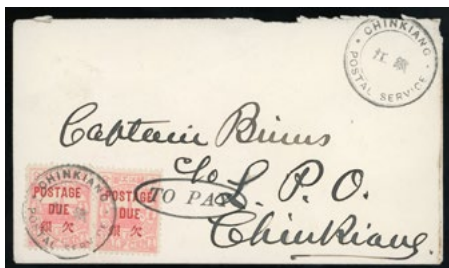 CHINKIANG
江鎮
POSTAL SERVICE
Captain Binns
c/o L. P. O.
Chinkiang
TO PAY
CHINKIANG
POSTAGE
DUE
欠
POSTAGE
DUE
欠